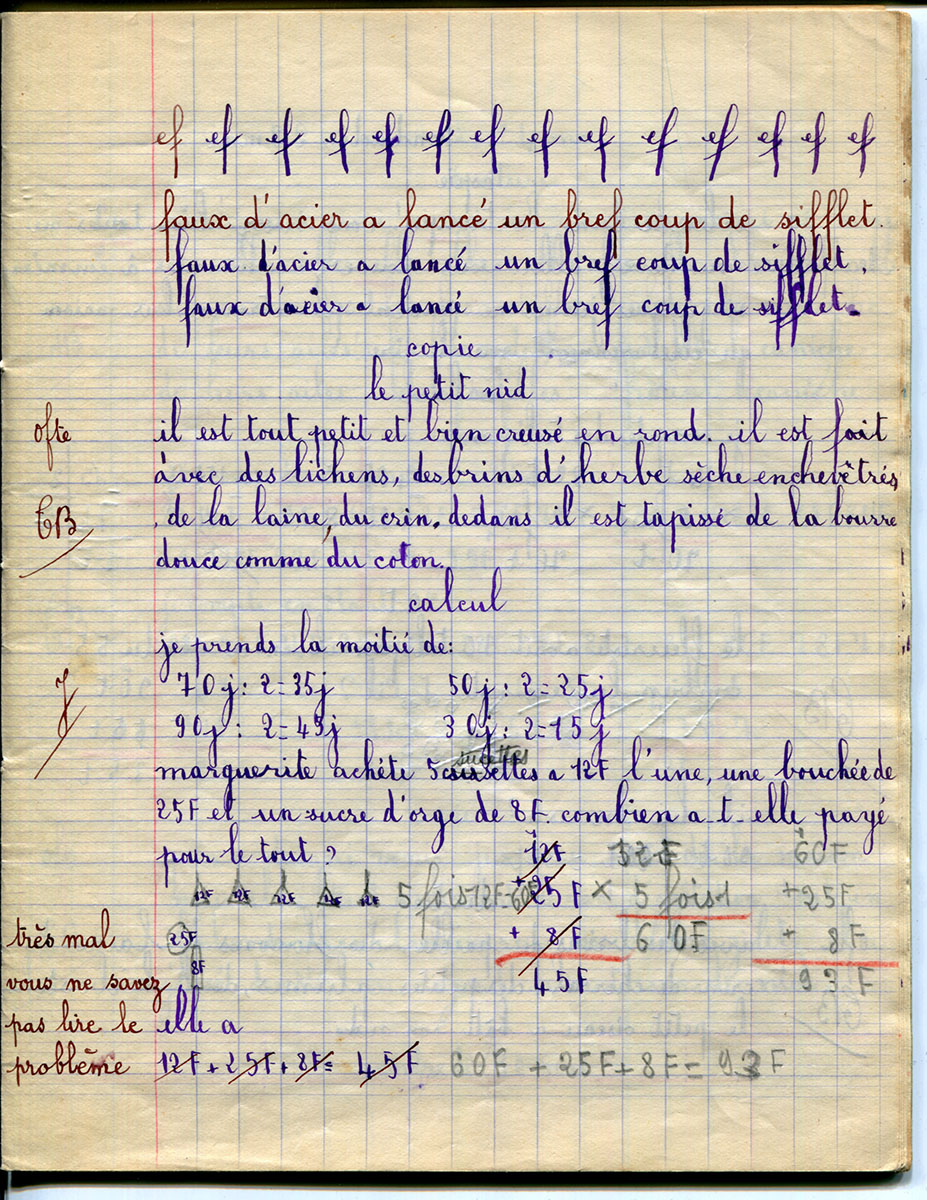 ef ef ef ef ef ef ef ef ef ef ef ef ef ef
faux d'acier a lancé un bref coup de sifflet.
faux d'acier a lancé un bref coup de sifflet.
faux d'acier a lancé un bref coup de sifflet.
copie
le petit nid
ofte il est tout petit et bien creusé en rond. il est fait
avec des lichens, des brins d'herbe sèche enchevêtrés
TB , de la laine, du crin. dedans il est tapissé de la bourre
douce comme du coton.
calcul
je prends la moitié de:
70j : 2 = 35j 50j : 2 = 25j
90j : 2 = 45j 30j : 2 = 15j
sucettes
marguerite achète 5 a 12F l'une, une bouchée de
25F et un sucre d'orge de 8F. combien a-t-elle payé
pour le tout ? 12F 12F 60F
12F 12F 12F 12F 12F 5 fois 12F=60F +25F × 5 fois + 25F
très mal 25F + 8F 60F + 8F
vous ne savez 8F 45F 93F
pas lire le elle a
problème 12F + 25F + 8F = 45F 60F + 25F + 8F = 93F